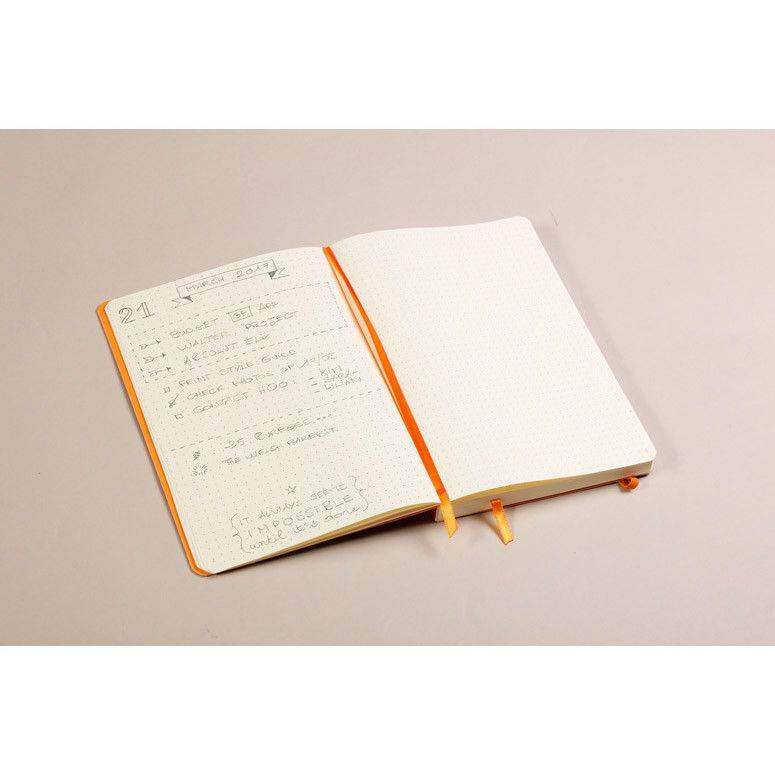 MARCH 2017
21
BUDGET APP
WALTER PROJECT
ABSOLUT ELK
PRINT STYLE GUIDE
CHECK PHOTOS OF
CONTACT HOO! - KIM
SARA
LILIAN
THE WELSH RAREBIT.
IT ALWAYS SEEMS
IMPOSSIBLE
until it's done